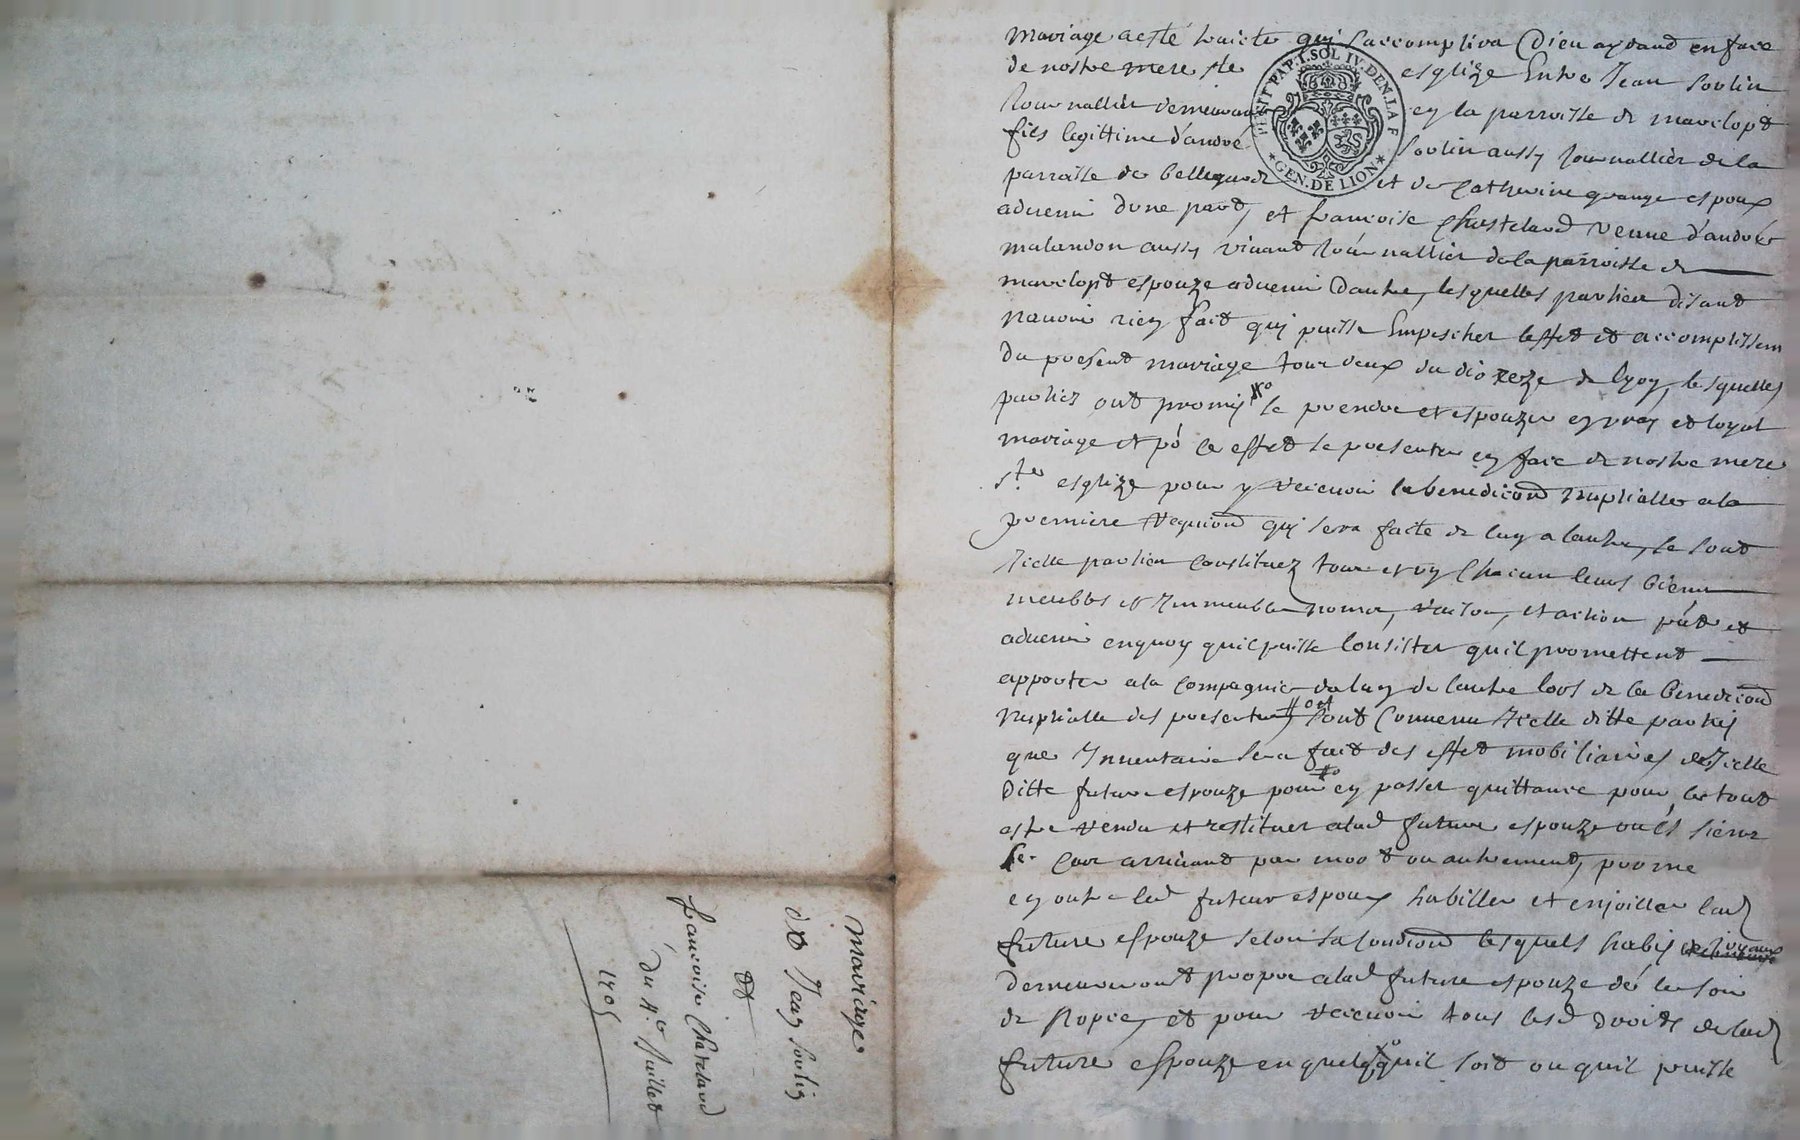 mariage acsté traicté qui saccomplira Dieu aydand en face
de nostre mere ste esglize Entre Jean Soulin
Journallier demeurand en la parroisse de marclopt
fils legittime d'andré Soulin aussy Journallier de la
parroisse de bellegarde et de Catherine grange espoux
aduenir dune part, et francoise Chasteland veuue d'andré
malandon aussy viuand Journallier de la parroisse de
marclopt espouze aduenir Dautre, lesquelles parties disant
nauoir rien fait qui puisse Empescher leffet et accomplissem
du present mariage tous deux du diozeze de lyon, lesquelles
parties ont promis se prendre et espouzer en vray et loyal
mariage et po ce effet se presenter en face de nostre mere
ste esglize pour y receuoir la benediction nuptialle a la
premiere requiond qui sera faite de luy a lautre, se sont
Icelle parties Constituez tous et un Chacun leurs biens
meubles et Immeubles noms, raisons, et action pnt et
aduenir en quoy quil puisse Consister quil promettent
apporter a la Compagnie de luy de lautre lors de la benediction
nuptialle des presentes sont Conuenu Icelle ditte parties
que Inuentaire sera fait des effet mobiliaires de Icelle
Ditte future espouze pour en passer quittance pour le tout
estre rendu et restituer a lad future espouze ou és siens
le Cas arriuant par mort ou autrement, promet
en outre led futeur espoux habiller et enjoiller lad
future espouze selon sa Condiond lesquels habis et Joyaux
demeureront propre a lad future espouze dé le Soir
de Nopce, et pour receuoir tous lesd droits de lad
future espouze en quelq quil soit ou quil puisse
mariage
de Jean Soulin
et
francoise Chateland
du 4e Juillet
1705
PETIT PAP. I. SOL IV. DEN. LA F
GEN. DE LION